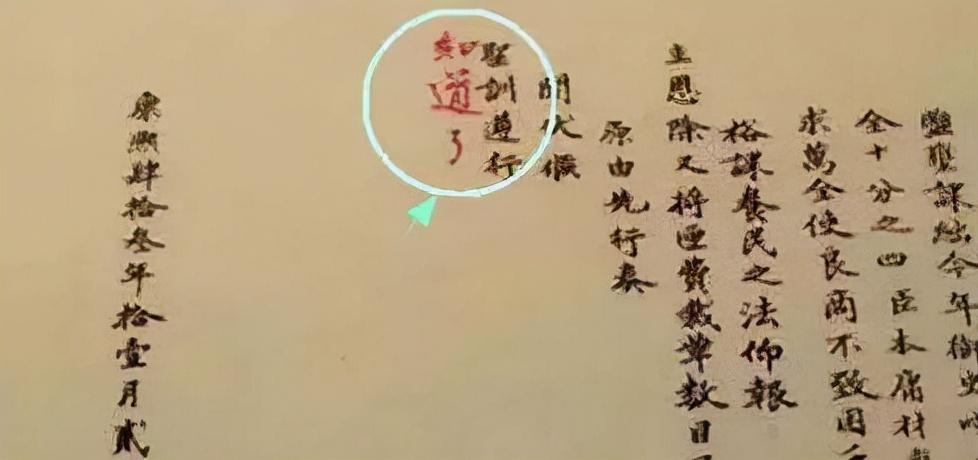 課 今年御史
金十分之四臣本庸材
求萬全使民商不致困
裕課養民之法仰報
主恩除又將匣費裁革數目
原由先行奏
聞伏候
聖訓遵行
知道了
康熙肆拾叁年拾壹月貳